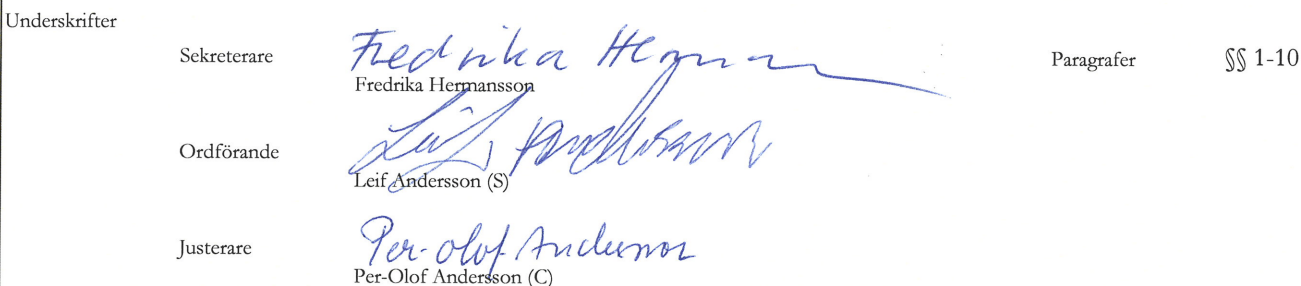 Underskrifter
Sekreterare Fredrika Herman Paragrafer §§ 1-10
Fredrika Hermansson
Ordförande Leif Andersson
Leif Andersson (S)
Justerare Per-Olof Andersson
Per-Olof Andersson (C)